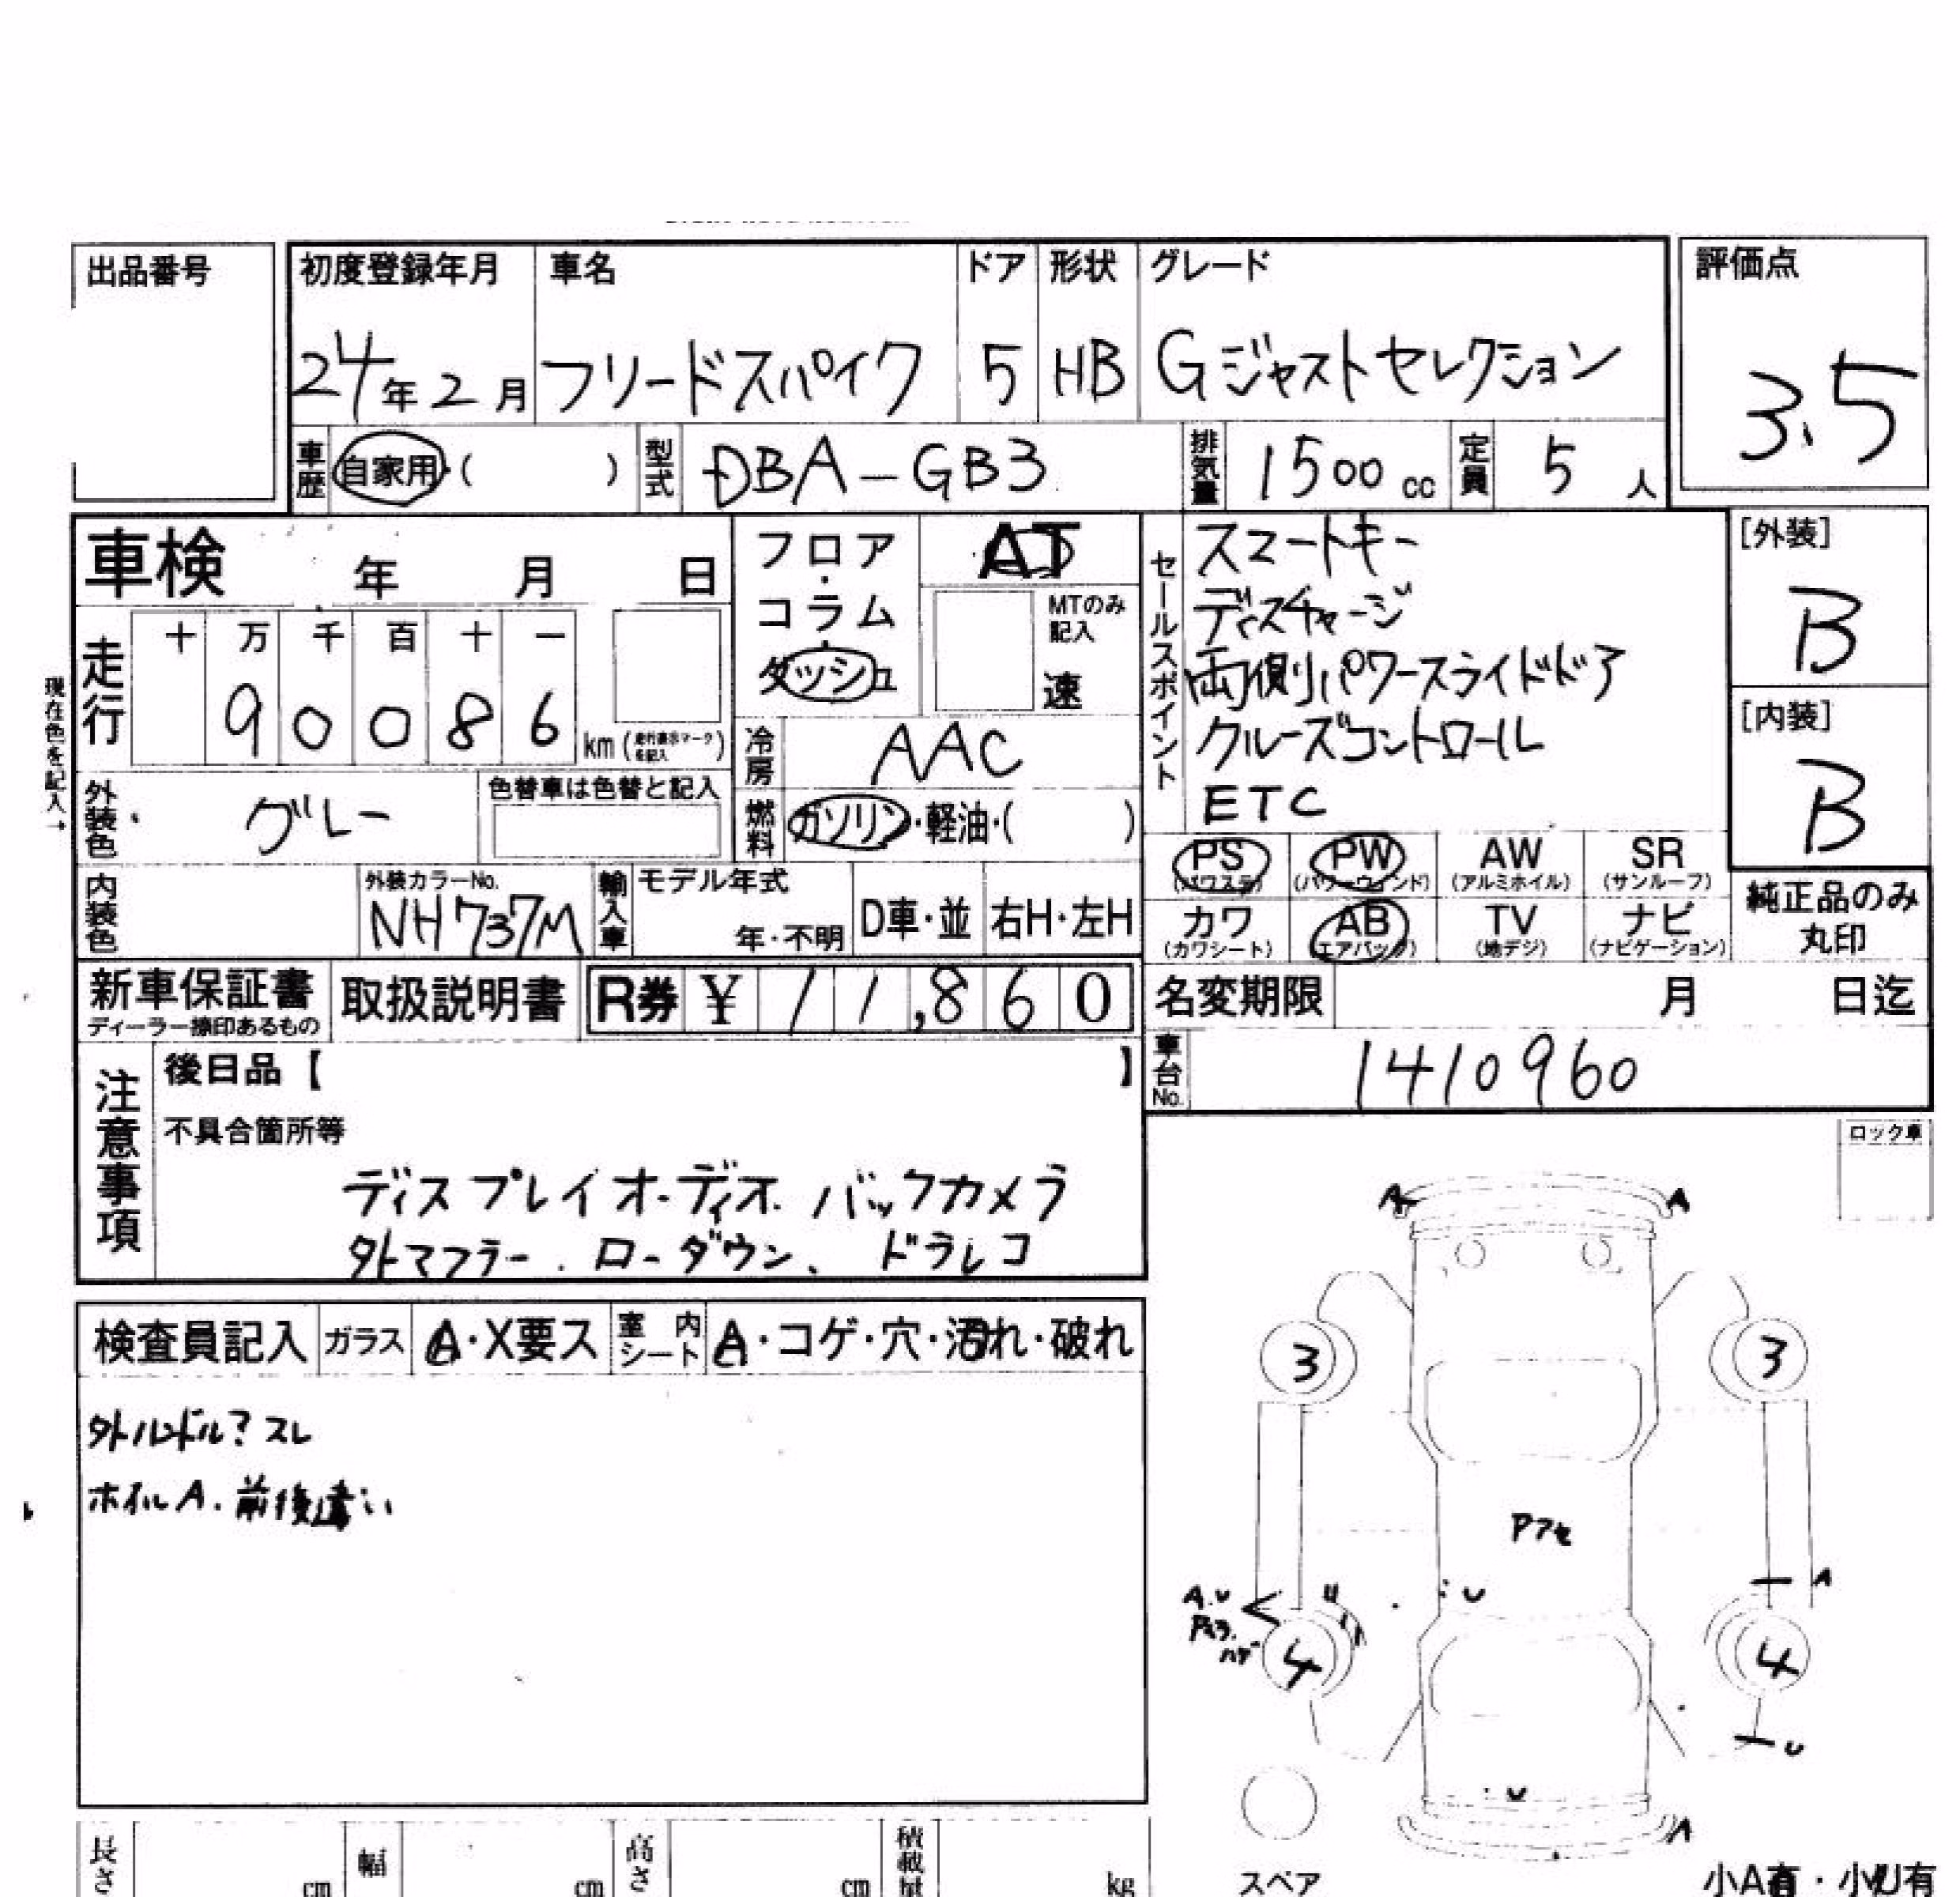 出品番号
初度登録年月 車名 ドア 形状 グレード 評価点
24年2月 フリードスパイク 5 HB Gジャストセレクション 3.5
車歴 自家用・( ) 型式 DBA-GB3 排気量 1500cc 定員 5人
車検 年 月 日 フロア・コラム・ダッシュ AT
MTのみ記入 速
セールスポイント
スマートキー
ディスチャージ
両側パワースライドドア
クルーズコントロール
ETC
[外装]
B
[内装]
B
現在色を記入→
走行 十 万 千 百 十 一
9 0 0 8 6 km
冷房 AAC
外装色 グレー 色替車は色替と記入
燃料 ガソリン・軽油・( )
PS (パワステ) PW (パワーウィンド) AW (アルミホイル) SR (サンルーフ)
カワ (カワシート) AB (エアバッグ) TV (地デジ) ナビ (ナビゲーション)
純正品のみ
丸印
内装色 外装カラーNo. NH737M 輸入車 モデル年式 年・不明 D車・並 右H・左H
新車保証書 取扱説明書 R券 ¥ 11,860
ディーラー捺印あるもの
名変期限 月 日迄
車台No. 1410960
注意事項
後日品【 】
不具合箇所等
ディスプレイオーディオ. バックカメラ
外マフラー. ローダウン、ドラレコ
ロック車
検査員記入 ガラス A・X要ス 室内シート A・コゲ・穴・汚れ・破れ
ホイルA. 前後違い
A A
3 3
Pアセ
A.U
U
A
4 4
U
U
A
長さ cm 幅 cm 高さ cm 積載量 kg
スペア
小A有・小U有